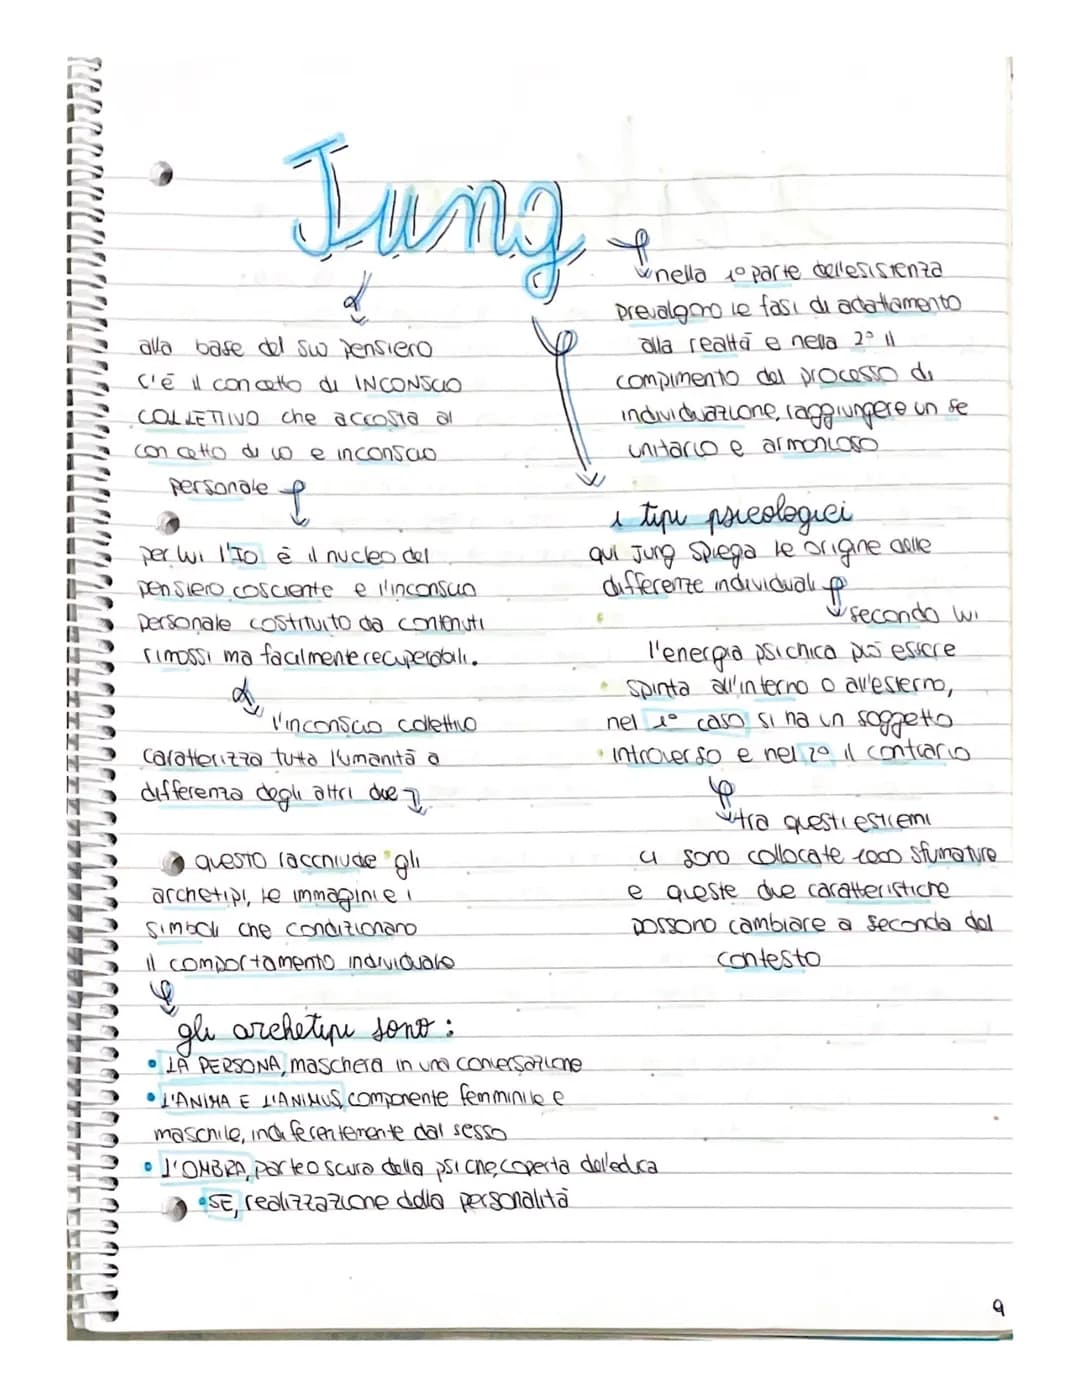 Jung
alla base del suo pensiero
c'è il concetto di INCONSCIO
COLLETTIVO che accosta al
concetto di io e inconscio
personale
per lui l'IO è il nucleo del
pensiero cosciente e l'inconscio
personale costituito da contenuti
rimossi ma facilmente recuperabili.
l'inconscio collettivo
caratterizza tutta l'umanità a
differenza degli altri due
questo racchiude gli
archetipi, le immagini e i
simboli che condizionano
il comportamento individuale
gli archetipi sono:
• LA PERSONA, maschera in una conversazione
• L'ANIMA E L'ANIMUS, componente femminile e
maschile, indiferentemente dal sesso
• L'OMBRA, parte oscura della psiche, coperta dall'educa
• SE, realizzazione della personalità
nella 1º parte dell'esistenza
prevalgono le fasi di adattamento
alla realtà e nella 2º il
compimento del processo di
individuazione, raggiungere un se
unitario e armonioso
i tipi psicologici
qui Jung spiega le origine delle
differenze individuali
secondo lui
l'energia psichica può essere
spinta all'interno o all'esterno,
nel 1º caso si ha un soggetto
introverso e nel 2º il contrario
tra questi estremi
ci sono collocate 1000 sfumature
e queste due caratteristiche
possono cambiare a seconda del
contesto
9